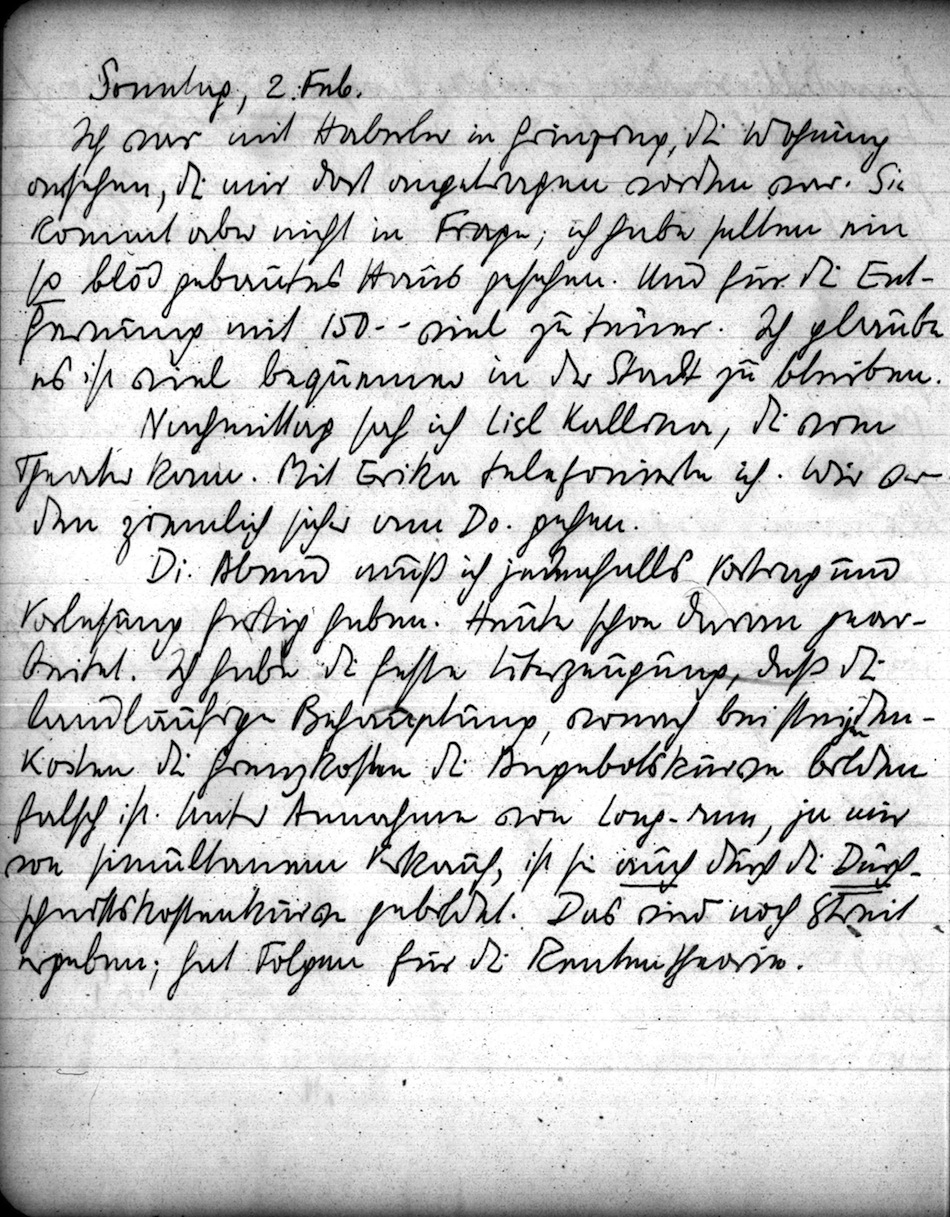 Sonntag, 2. Feb.
Ich war mit Haberler in Grinzing, die Wohnung
ansehen, die mir dort angetragen worden war. Sie
kommt aber nicht in Frage; ich habe selten ein
so blöd gebautes Haus gesehen. Und für die Ent-
fernung mit 150.-- viel zu teuer. Ich glaube
es ist viel bequemer in der Stadt zu bleiben.
Nachmittag sah ich Lisl Kallina, die vom
Theater kam. Mit Erika telefonierte ich. Wir wer-
den ziemlich sicher am Do. gehen.
Di. Abend muß ich jedenfalls Vortrag und
Vorlesung fertig haben. Heute schon daran gear-
beitet. Ich habe die feste Überzeugung, daß die
landläufige Behauptung, wonach bei steigenden
Kosten die Grenzkosten die Angebotskurve bilden
falsch ist. Unter Annahme von Long-run, ja nur
von simultanem Verkauf, ist sie auch durch die Durch-
schnittskostenkurve gebildet. Das wird noch Streit
ergeben; hat Folgen für die Rententheorie.